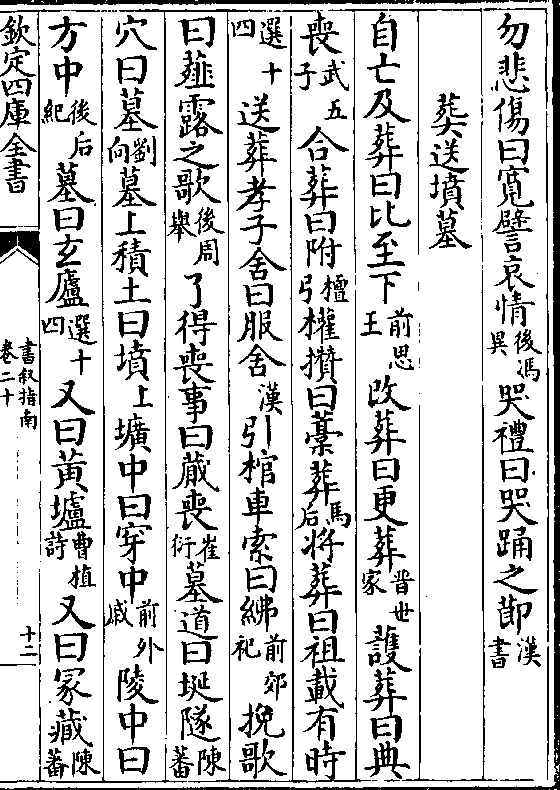 勿悲傷曰寬譬哀情後馮異哭禮曰哭踊之節漢書
葬送墳墓
自亡及葬曰比至下前思王改葬曰更葬晉世家護葬曰典
喪武五子合葬曰附檀引權攢曰藁葬馬后將葬曰祖載有時
選十四送葬孝子舍曰服舍漢引棺車索曰紼前郊祀挽歌
曰薤露之歌後周舉了得喪事曰蕆喪崔衍墓道曰埏隧陳蕃
穴曰墓劉向墓上積土曰墳上壙中曰穿中前外戚陵中曰
方中後后紀墓曰玄廬選十四又曰黃壚曹植詩又曰冢藏陳蕃
欽定四庫全書
書敘指南
卷二十
十二